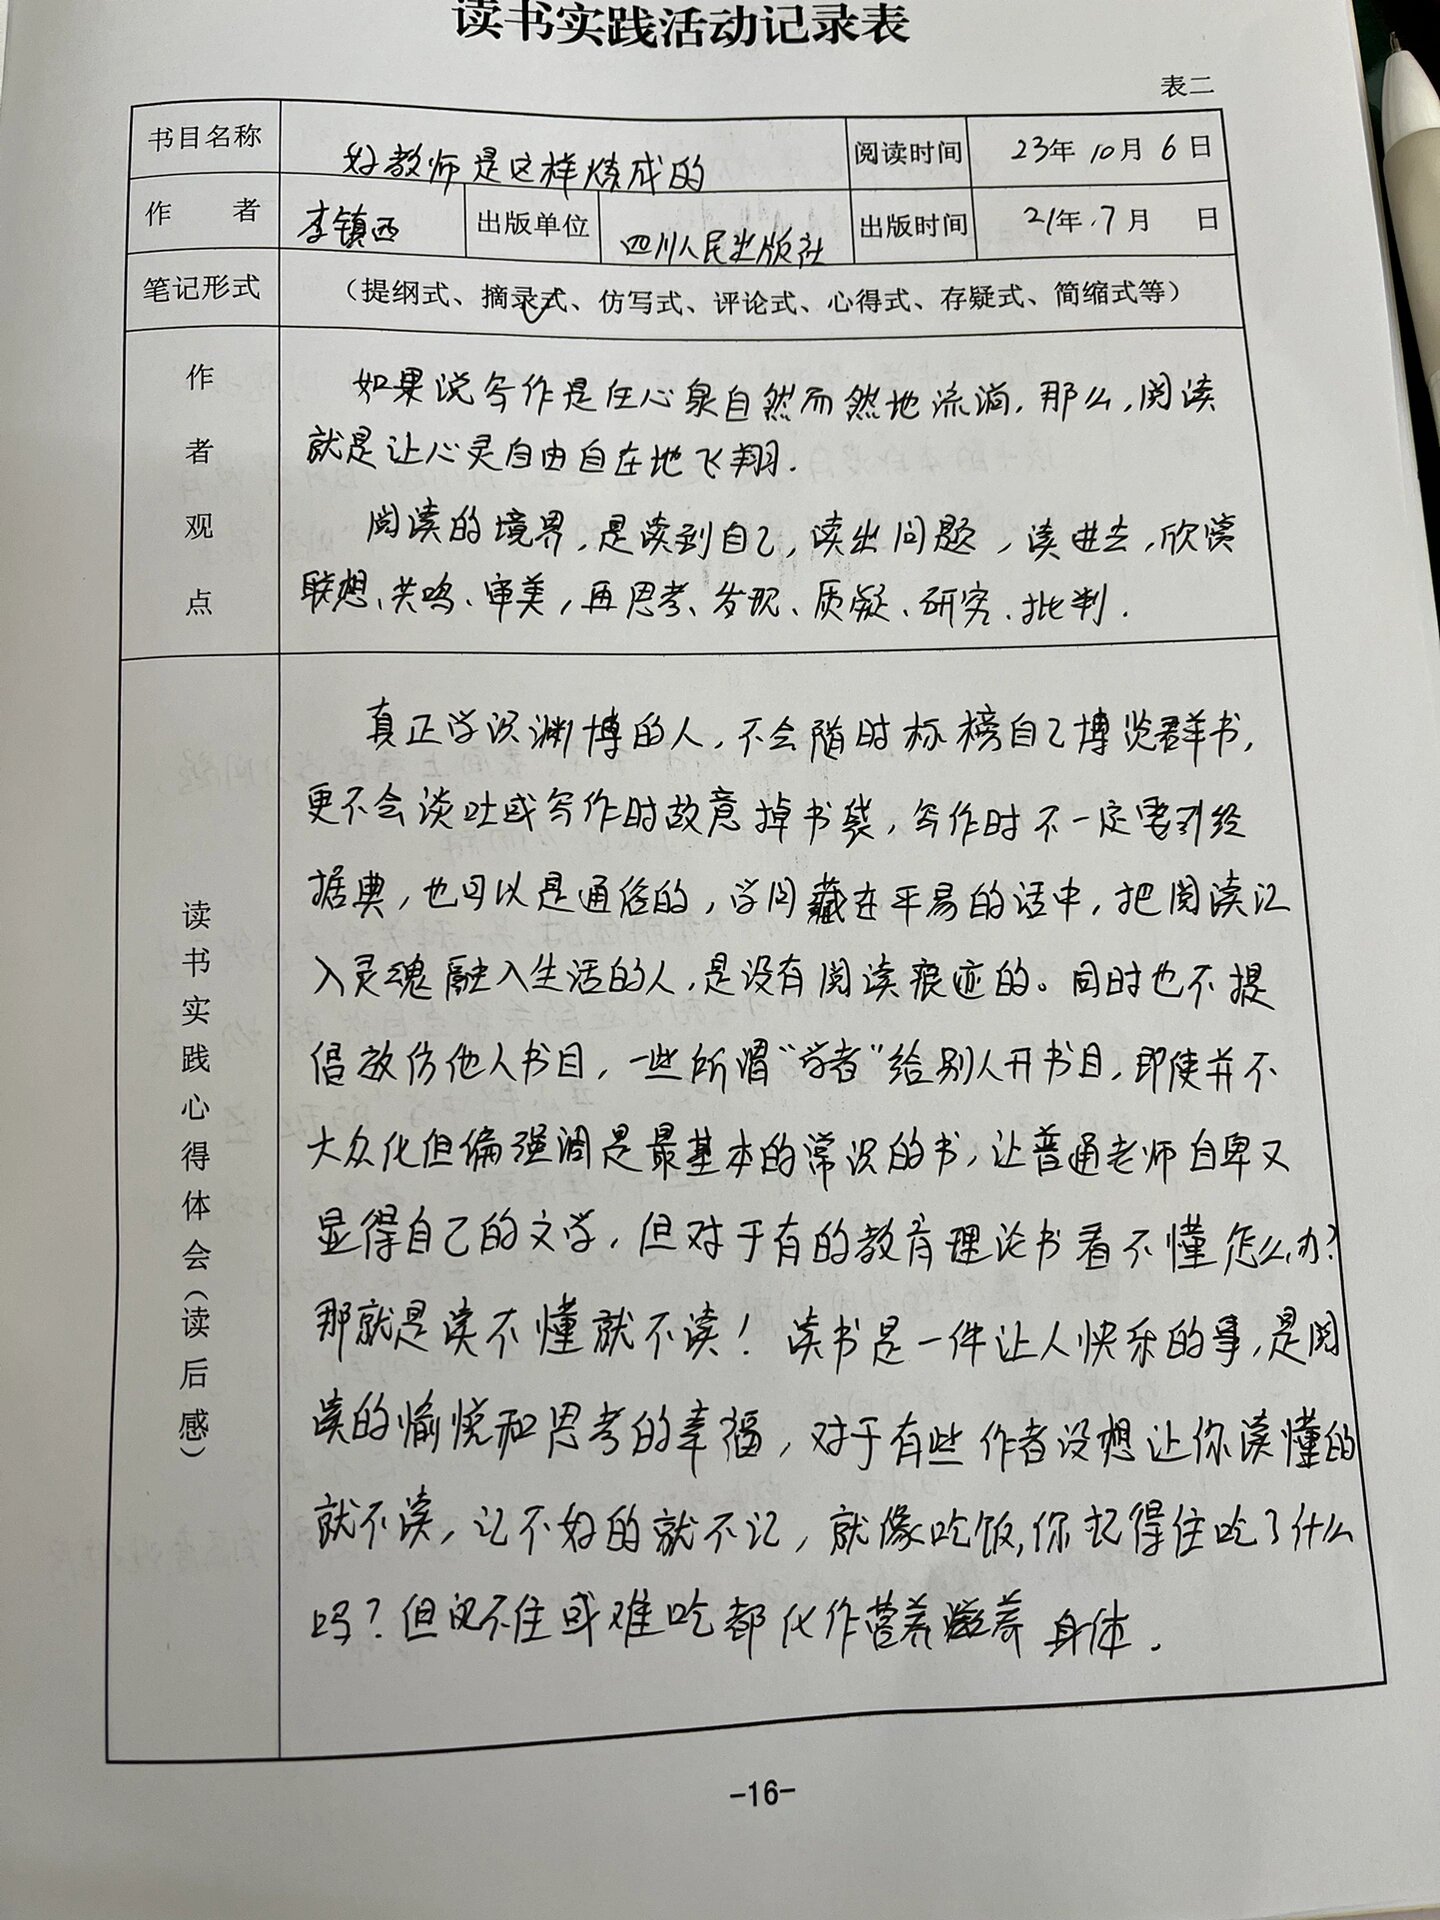 读书实践活动记录表
表二
书目名称 好教师是这样炼成的 阅读时间 23年10月6日
作者 李镇西 出版单位 四川人民出版社 出版时间 21年.7月 日
笔记形式 （提纲式、摘录式、仿写式、评论式、心得式、存疑式、简缩式等）
作者观点
如果说写作是任心泉自然而然地流淌，那么，阅读
就是让心灵自由自在地飞翔．
阅读的境界，是读到自己，读出问题，读进去，欣赏
联想、共鸣、审美，再思考、发现、质疑、研究、批判．
读书实践心得体会（读后感）
真正学识渊博的人，不会随时标榜自己博览群书，
更不会谈吐或写作时故意掉书袋，写作时不一定要引经
据典，也可以是通俗的，学问藏在平易的话中，把阅读汇
入灵魂融入生活的人，是没有阅读痕迹的。同时也不提
倡放仿他人书目，一些所谓“学者”给别人开书目，即使并不
大众化但偏强调是最基本的常识的书，让普通老师自卑又
显得自己的文学，但对于有的教育理论书看不懂怎么办？
那就是读不懂就不读！读书是一件让人快乐的事，是阅
读的愉悦和思考的幸福，对于有些作者没想让你读懂的
就不读，记不好的就不记，就像吃饭，你记得住吃了什么
吗？但记不住或难吃都化作营养滋养身体．
-16-